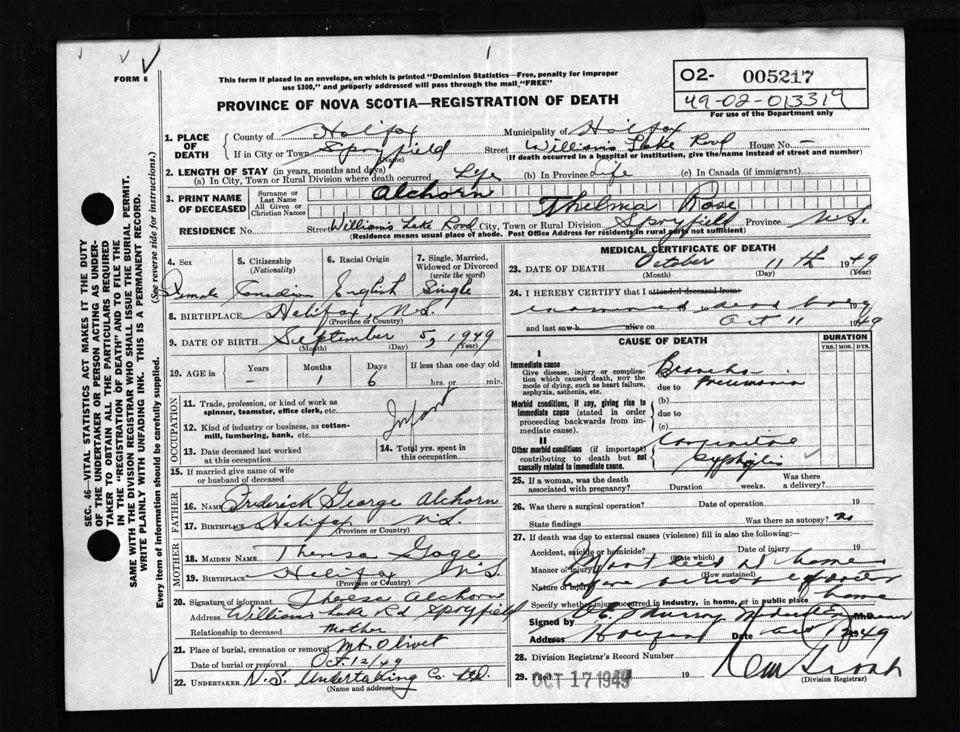 FORM 6
This form if placed in an envelope, on which is printed "Dominion Statistics—Free, penalty for improper
use $300," and properly addressed will pass through the mail "FREE"
O2- 005217
49-02-013319
For use of the Department only
PROVINCE OF NOVA SCOTIA—REGISTRATION OF DEATH
1. PLACE OF DEATH
County of Halifax Municipality of Halifax
If in City or Town Spryfield Street Williams Lake Road House No. -
(Name) (If death occurred in a hospital or institution, give the name instead of street and number)
2. LENGTH OF STAY (in years, months and days)
(a) In City, Town or Rural Division where death occurred Life (b) In Province Life (c) In Canada (if immigrant)
3. PRINT NAME OF DECEASED
Surname or Last Name Alchorn
All Given or Christian Names Thelma Rose
RESIDENCE No. Street Williams Lake Road City, Town or Rural Division Spryfield Province N.S.
(Residence means usual place of abode. Post Office Address for residents in rural parts not sufficient)
SEC. 46—VITAL STATISTICS ACT MAKES IT THE DUTY
OF THE UNDERTAKER OR PERSON ACTING AS UNDER-
TAKER TO OBTAIN ALL THE PARTICULARS REQUIRED
IN THE "REGISTRATION OF DEATH" AND TO FILE THE
SAME WITH THE DIVISION REGISTRAR WHO SHALL ISSUE THE BURIAL PERMIT.
WRITE PLAINLY WITH UNFADING INK. THIS IS A PERMANENT RECORD.
Every item of information should be carefully supplied. (See reverse side for instructions.)
4. Sex
Female
5. Citizenship (Nationality)
Canadian
6. Racial Origin
English
7. Single, Married, Widowed or Divorced (write the word)
Single
8. BIRTHPLACE Halifax, N.S.
(Province or Country)
9. DATE OF BIRTH September 5, 1949
(Month) (Day) (Year)
10. AGE in Years Months Days If less than one day old
- 1 6 hrs. or min.
OCCUPATION
11. Trade, profession, or kind of work as spinner, teamster, office clerk, etc.
Infant
12. Kind of industry or business, as cotton-mill, lumbering, bank, etc.
13. Date deceased last worked at this occupation
14. Total yrs. spent in this occupation
15. If married give name of wife or husband of deceased
FATHER
16. NAME Frederick George Alchorn
17. BIRTHPLACE Halifax N.S.
(Province or Country)
MOTHER
18. MAIDEN NAME Theresa Gage
19. BIRTHPLACE Halifax N.S.
(Province or Country)
20. Signature of informant Theresa Alchorn
Address Williams Lake Rd Spryfield
Relationship to deceased Mother
21. Place of burial, cremation or removal Mt. Olivet
Date of burial or removal Oct. 12/49
22. UNDERTAKER N.S. Undertaking Co. Ltd.
(Name and address)
MEDICAL CERTIFICATE OF DEATH
23. DATE OF DEATH October 11th 1949
(Month) (Day) (Year)
24. I HEREBY CERTIFY that I attended deceased from
examined dead body
and last saw h alive on Oct 11 1949
CAUSE OF DEATH
DURATION
YRS. MOS. DYS.
I
Immediate cause
Give disease, injury or complication which caused death, not the mode of dying, such as heart failure, asphyxia, asthenia, etc.
Broncho
due to pneumonia
Morbid conditions, if any, giving rise to immediate cause (stated in order proceeding backwards from immediate cause).
(b)
due to
(c)
II
Other morbid conditions (if important) contributing to death but not causally related to immediate cause.
Congenital
Syphylis
25. If a woman, was the death associated with pregnancy? Duration weeks. Was there a delivery?
26. Was there a surgical operation? Date of operation 19
State findings Was there an autopsy? no
27. If death was due to external causes (violence) fill in also the following:—
Accident, suicide or homicide? Date of injury 19
(State which)
Manner of injury
(How sustained)
Nature of injury before arrival
home
Specify whether injury occurred in industry, in home, or in public place
Signed by Murray M.D.
Address Date Oct 1949
28. Division Registrar's Record Number
29. Filed OCT 17 1949 19
(Division Registrar)